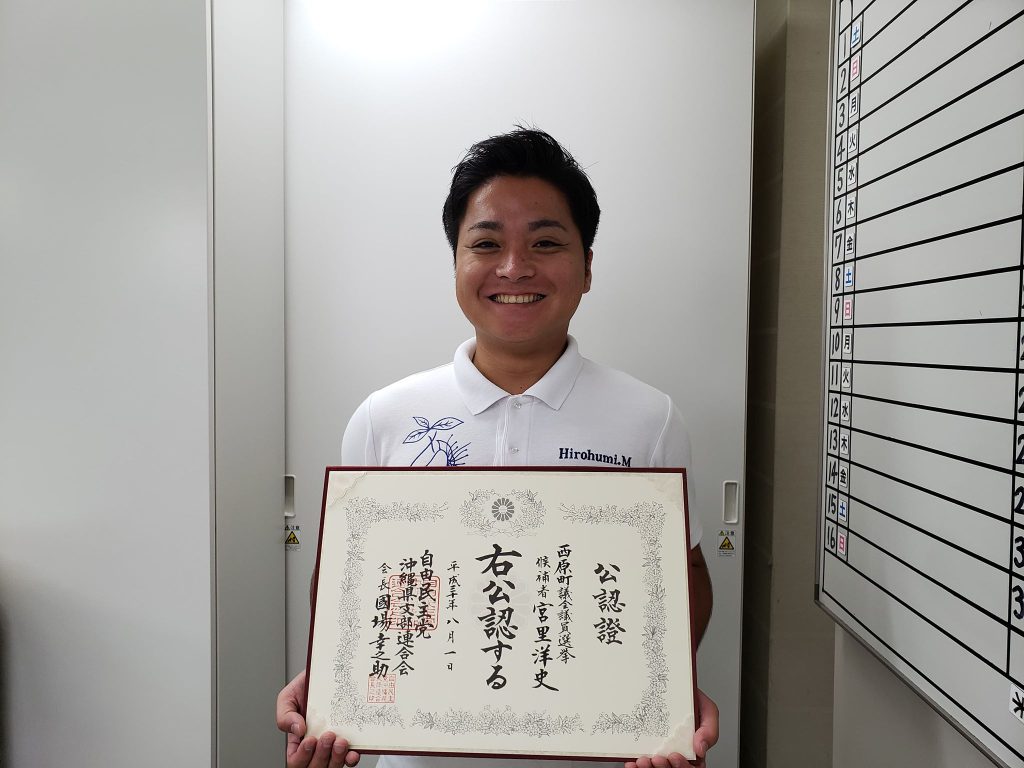 Hirohumi.M
公認證
西原町議会議員選挙
候補者 宮里洋史
右公認する
平成三十年八月一日
自由民主党
沖縄県支部連合会
会長 國場幸之助
1 土
2 日
3 月
4 火
5 水
6 木
7 金
8 土
9 日
10 月
11 火
12 水
13 木
14 金
15 土
16 日